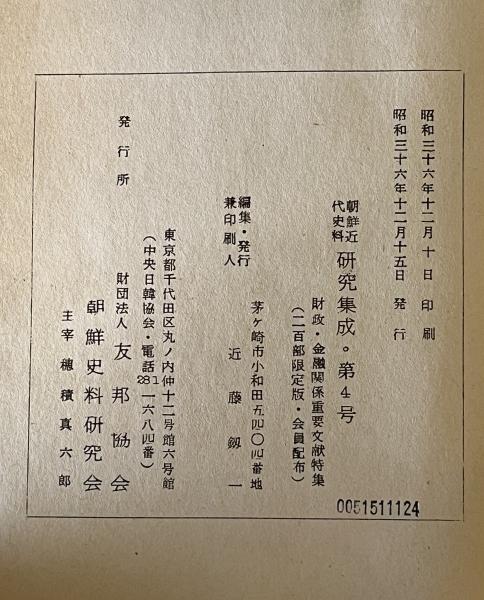 昭和三十六年十二月十日 印刷
昭和三十六年十二月十五日 発行
朝鮮近代史料 研究集成・第4号
財政・金融関係重要文献特集
(二百部限定版・会員配布)
茅ヶ崎市小和田五四〇四番地
編集・発行兼印刷人 近藤釼一
東京都千代田区丸ノ内仲十二号館六号館
(中央日韓協会・電話281一六八四番)
発行所 財団法人 友邦協会
朝鮮史料研究会
主宰 穂積真六郎
0051511124